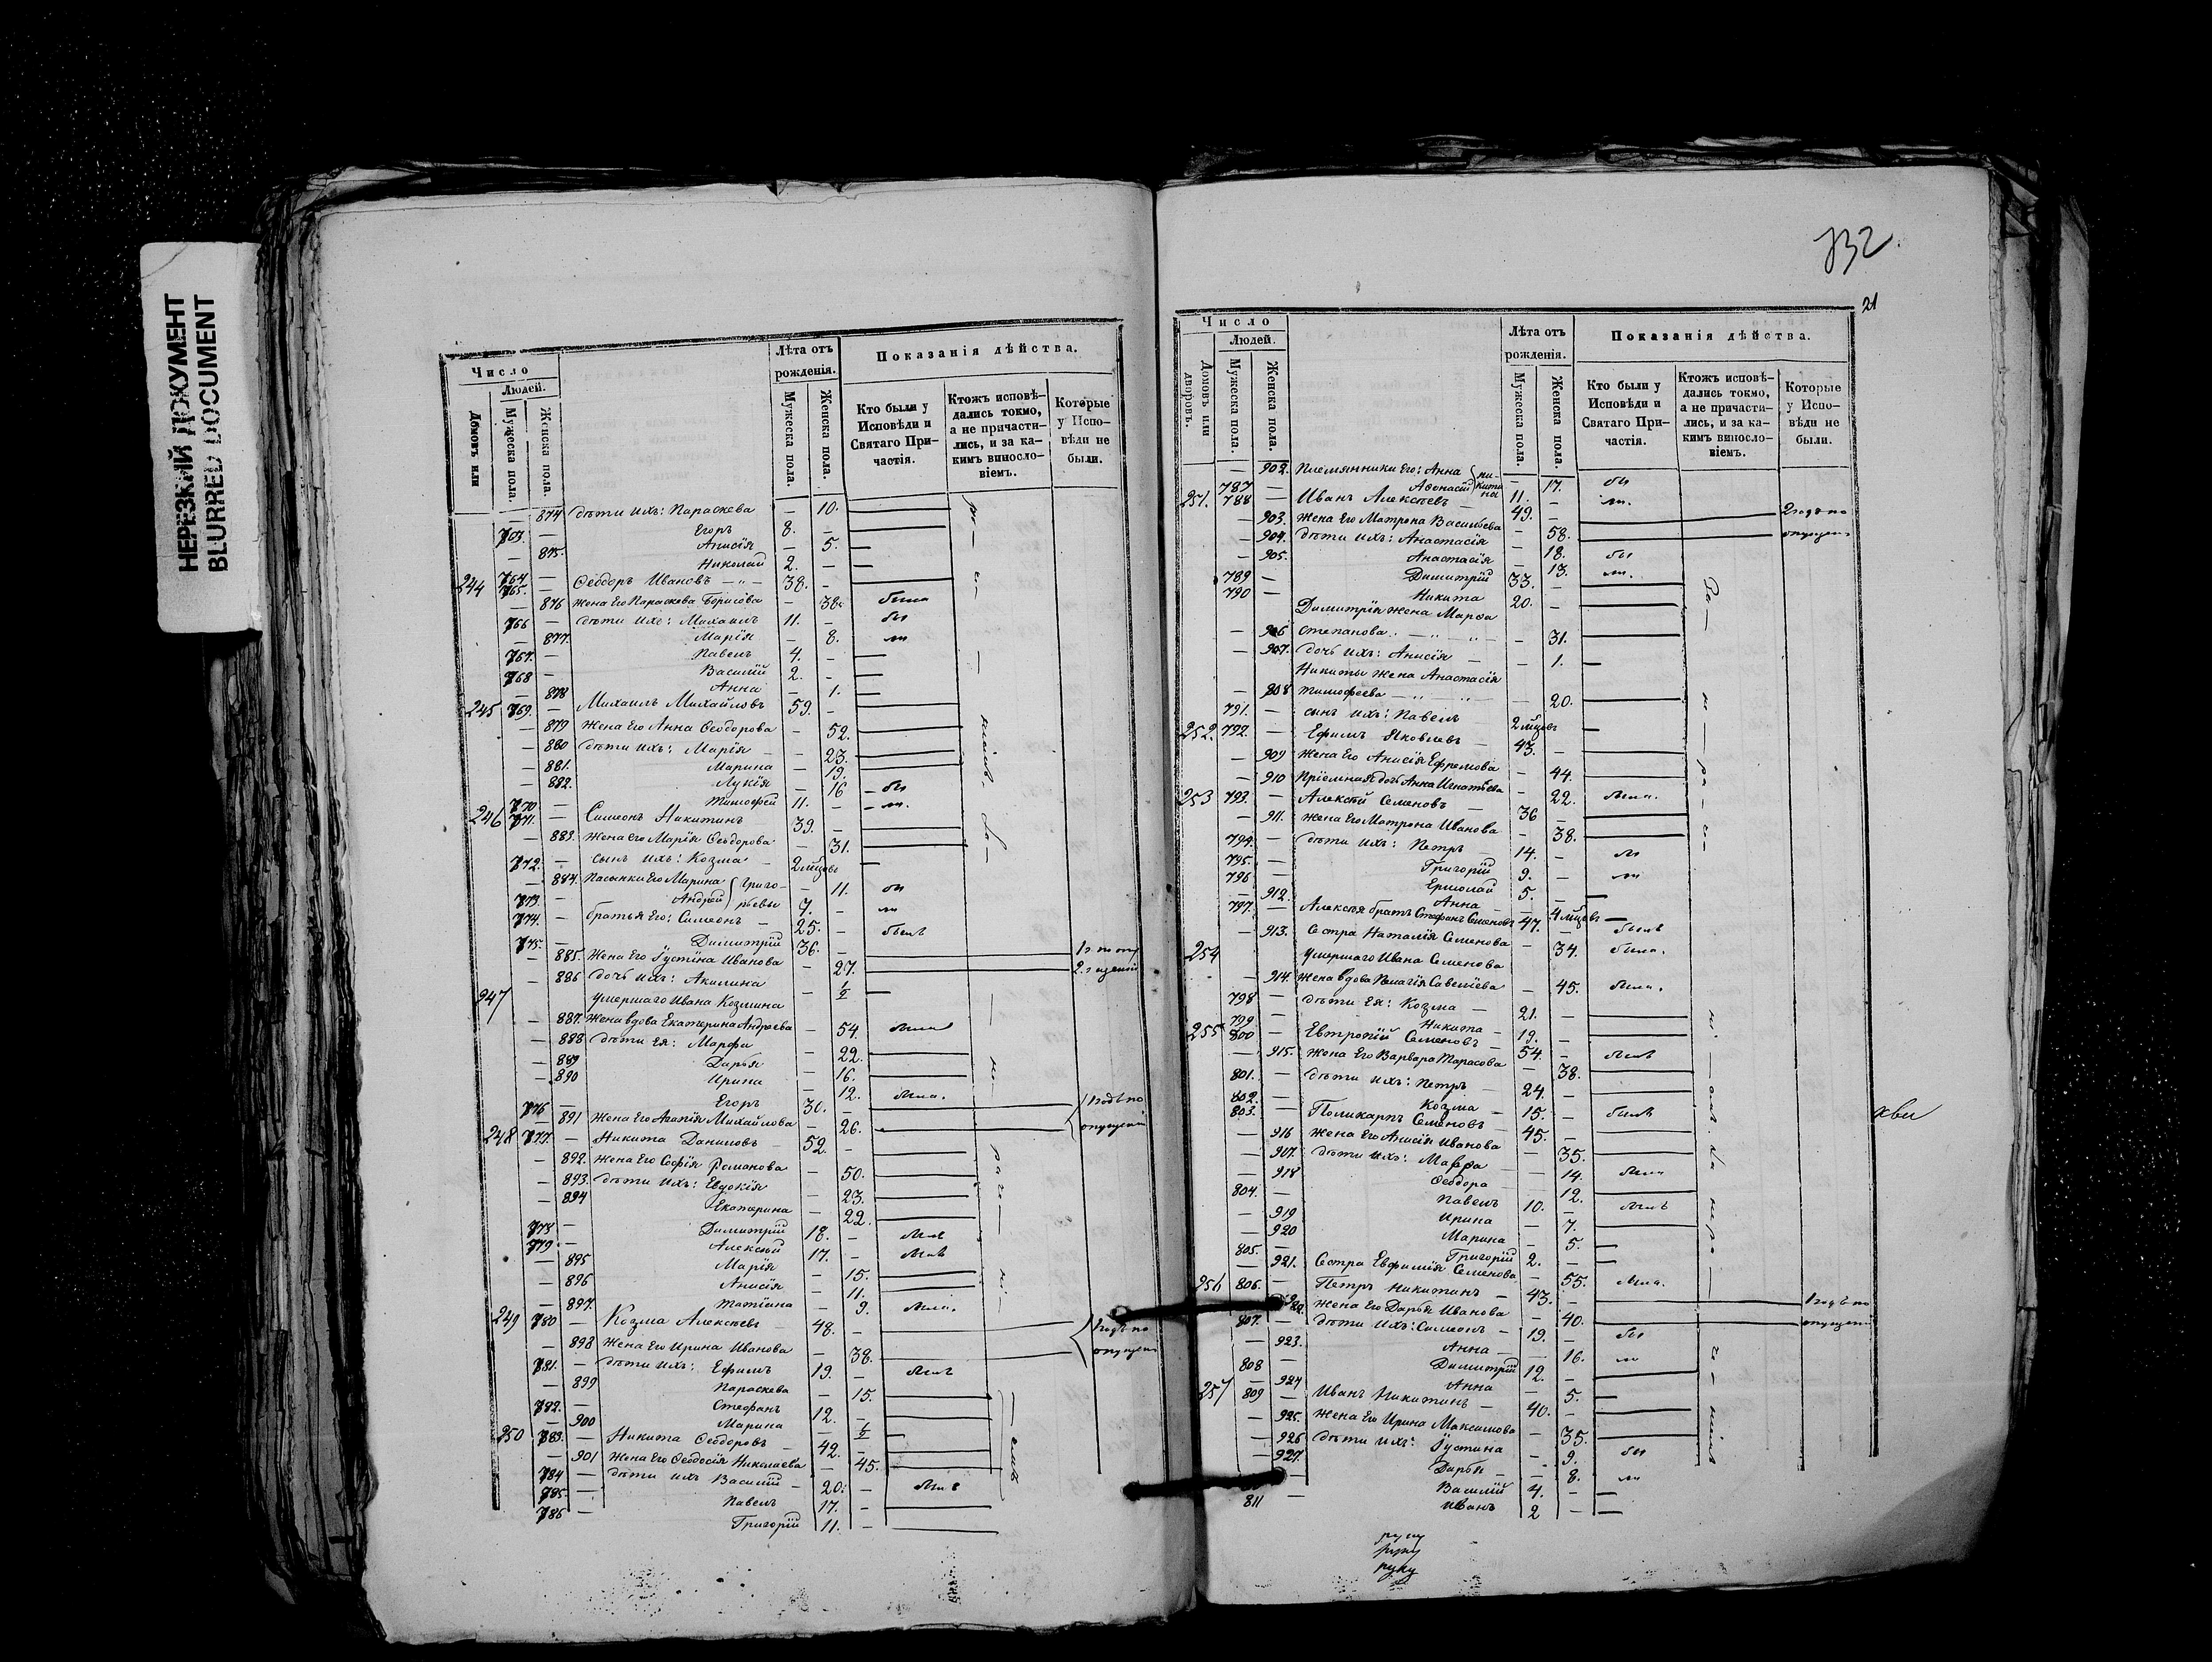 НЕРЕЗКИЙ ДОКУМЕНТ
BLURRED DOCUMENT
Число
Людей.
Домовъ или
Мужеска пола.
Женска пола.
Лѣта отъ рожденія.
Мужеска пола.
Женска пола.
Показанія дѣйства.
Кто были у Исповѣди и Святаго Причастія.
Ктожъ исповѣдались токмо, а не причастились, и за какимъ винословіемъ.
Которые у Исповѣди не были.
— 874 дѣти ихъ: Параскева — 10.
763. — Егоръ 8. —
— 875. Анисія — 5.
764. — Николай 2. —
244 765. — Ѳеодоръ Ивановъ 38. —
— 876 жена его Параскева Борисова — 38. была
766 — дѣти ихъ: Михаилъ 11. — бы
— 877. Марія — 8. ли
767. — Павелъ 4. —
768 — Василій 2. —
— 878 Анна — 1.
245 769. — Михаилъ Михайловъ 59. —
— 879 жена его Анна Ѳеодорова — 52.
— 880 дѣти ихъ: Марія — 23.
— 881. Марина — 19.
— 882. Лукія — 16 бы
770 — Тимофей 11. — ли.
246 771. — Симеонъ Никитинъ 39. —
— 883. жена его Марія Ѳеодорова — 31.
772. — сынъ ихъ: Козма 2 мѣсцовъ
— 884. пасынки его Марина — 11. бы
773. — Андрей Григорьевы 7. — ли
774. — братья его: Симеонъ 25. — былъ
775. — Димитрій 36. —
— 885. жена его Іустина Иванова — 27.
— 886 дочь ихъ: Акилина — 1/2
247 умершаго Ивана Козмина
— 887. жена вдова Екатерина Андреева — 54. была
— 888 дѣти ея: Марфа — 22.
— 889 Дарья — 16.
— 890 Ирина — 12. была.
776 — Егоръ 30. — 1 годъ по
— 891 жена его Агапія Михайлова — 26. опущен
248 777. — Никита Даниловъ 52. —
— 892. жена его Софія Романова — 50.
— 893. дѣти ихъ: Евдокія — 23.
— 894 Екатерина — 22.
778 — Димитрій 18. — былъ
779 — Алексѣй 17. — былъ
— 895 Марія — 15.
— 896 Анисія — 11.
— 897. Татіана — 9. была.
249 780 — Козма Алексѣевъ 48. — 1 годъ по
— 898 жена его Ирина Иванова — 38. опущен
781. — дѣти ихъ: Ефимъ 19. — былъ
— 899 Параскева — 15.
782. — Стефанъ 12. —
— 900 Марина — 1/2
250 783. — Никита Ѳеодоровъ 42. —
— 901 жена его Ѳеодосія Николаева — 45.
784 — дѣти ихъ Василій 20. — былъ
785 — Павелъ 17. —
786 — Григорій 11. —
732
21
Число
Людей.
Домовъ или дворовъ.
Мужеска пола.
Женска пола.
Лѣта отъ рожденія.
Мужеска пола.
Женска пола.
Показанія дѣйства.
Кто были у Исповѣди и Святаго Причастія.
Ктожъ исповѣдались токмо, а не причастились, и за какимъ винословіемъ.
Которые у Исповѣди не были.
— 902. племянники его: Анна — 17. бы
787 — Аѳонасій Никитины 11. — ли.
251. 788 — Иванъ Алексѣевъ 49. — 2 годъ по
— 903. жена его Матрона Васильева — 58. опущен
— 904. дѣти ихъ: Анастасія — 18. бы
— 905. Анастасія — 13. ли.
789 — Димитрій 33. —
790 — Никита 20. —
Димитрія жена Марѳа
— 906 Степанова — 31.
— 907. дочь ихъ: Анисія — 1.
Никиты жена Анастасія
— 908 Тимофеева — 20.
791. — сынъ ихъ: Павелъ 2 мѣсцовъ
252. 792. — Ефимъ Яковлевъ 43. —
— 909 жена его Анисія Ефремова — 44.
— 910 пріемная дочь Анна Игнатьева — 22. была.
253 793. — Алексѣй Семеновъ 36 —
— 911. жена его Матрона Иванова — 38.
794. — дѣти ихъ: Петръ 14. — бы
795. — Григорій 9. — ли
796 — Ермолай 5. —
— 912. Анна — 4 мѣсцовъ
797. — Алексѣя братъ Стефанъ Семеновъ 47. — былъ
— 913. сестра Наталія Семенова — 34. была.
254 умершаго Ивана Семенова
— 914. жена вдова Пелагія Савеліева — 45. была.
798 — дѣти ея: Козма 21. —
799 — Никита 19. —
255 800 — Евтропій Семеновъ 54. — былъ
— 915. жена его Варвара Тарасова — 38.
801. — дѣти ихъ: Петръ 24. —
802. — Козма 15. — былъ
803. — Поликарпъ Семеновъ 45. —
— 916 жена его Анисія Иванова — 35.
— 917. дѣти ихъ: Мавра — 14. была
— 918 Ѳеодора — 12.
804. — Павелъ 10. — былъ
— 919 Ирина — 7.
— 920 Марина — 5.
805. — Григорій 2. —
— 921. Сестра Евфимія Семенова — 55. была.
256 806. — Петръ Никитинъ 43. — 1 годъ по
922. жена его Дарья Иванова — 40. опущен
807. — дѣти ихъ: Симеонъ 19. — бы
— 923. Анна — 16. ли
808 — Димитрій 12. —
— 924 Анна — 5.
257 809 — Иванъ Никитинъ 40. —
— 925. жена его Ирина Максимова — 35.
— 926 дѣти ихъ: Іустина — 9. бы
— 927. Дарья — 8. ли
— Василій 4. —
811 — Иванъ 2 —
руку
руку
руку